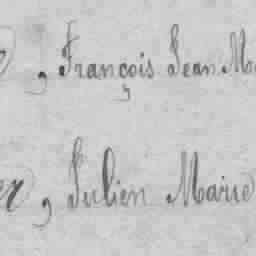 , François Jean Ma
er, Julien Marie